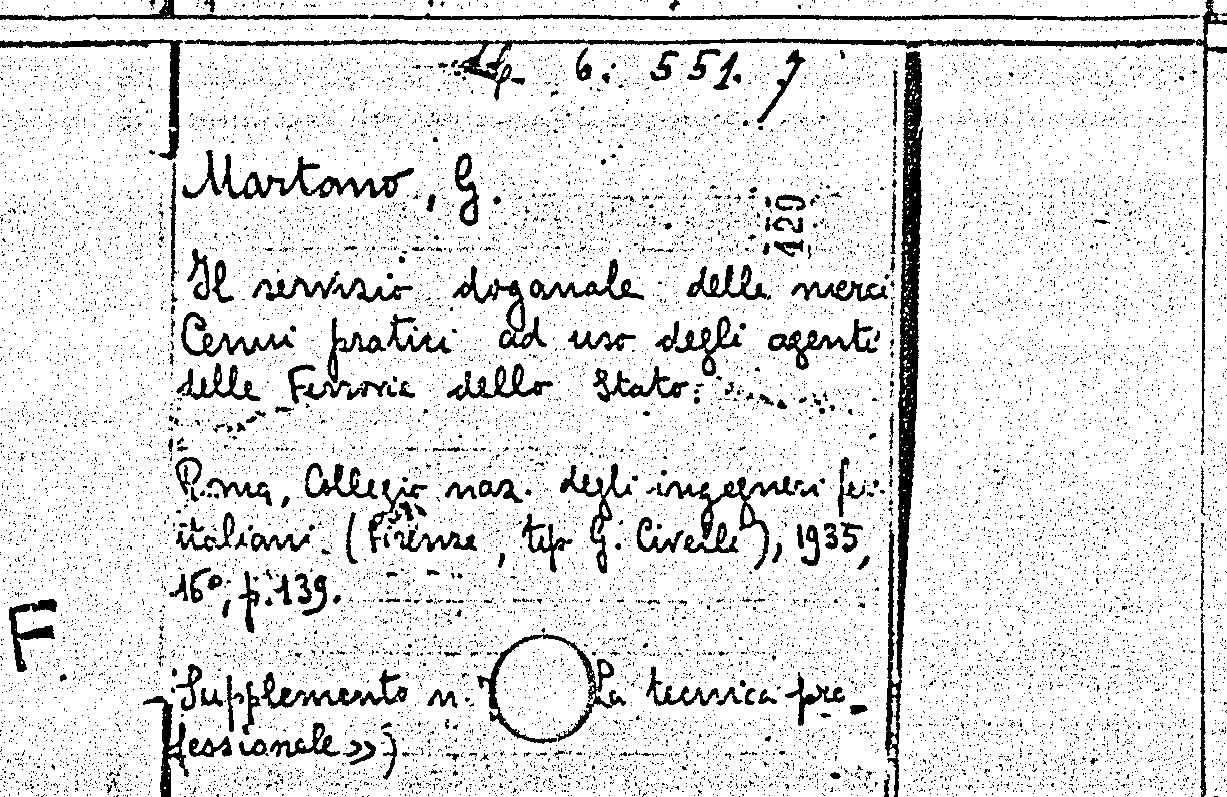 6. 551. 7
Martano, G.
120
Il servizio doganale delle merci
Cenni pratici ad uso degli agenti
delle Ferrovie dello Stato.
Roma, Collegio naz. degli ingegneri fer.
italiani. (Firenze, tip G. Civelli), 1935,
16°, p. 139.
F
Supplemento n. La tecnica pro-
fessionale »)